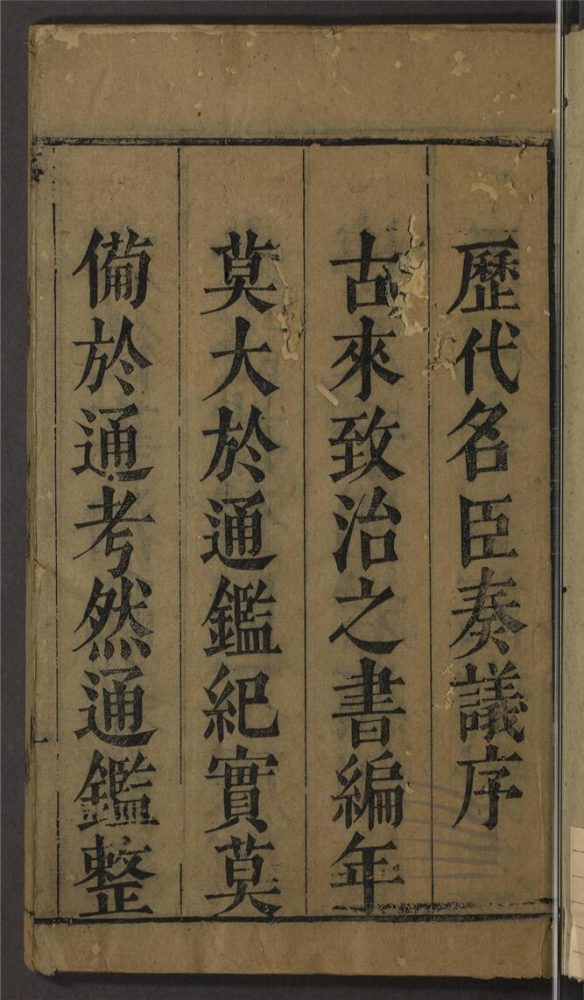 歷代名臣奏議序
古來致治之書編年
莫大於通鑑紀實莫
備於通考然通鑑整